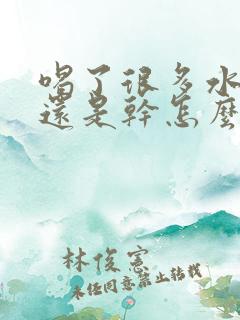 喝了很多水
還是幹怎麼
林俊憲
未經同意禁止轉載